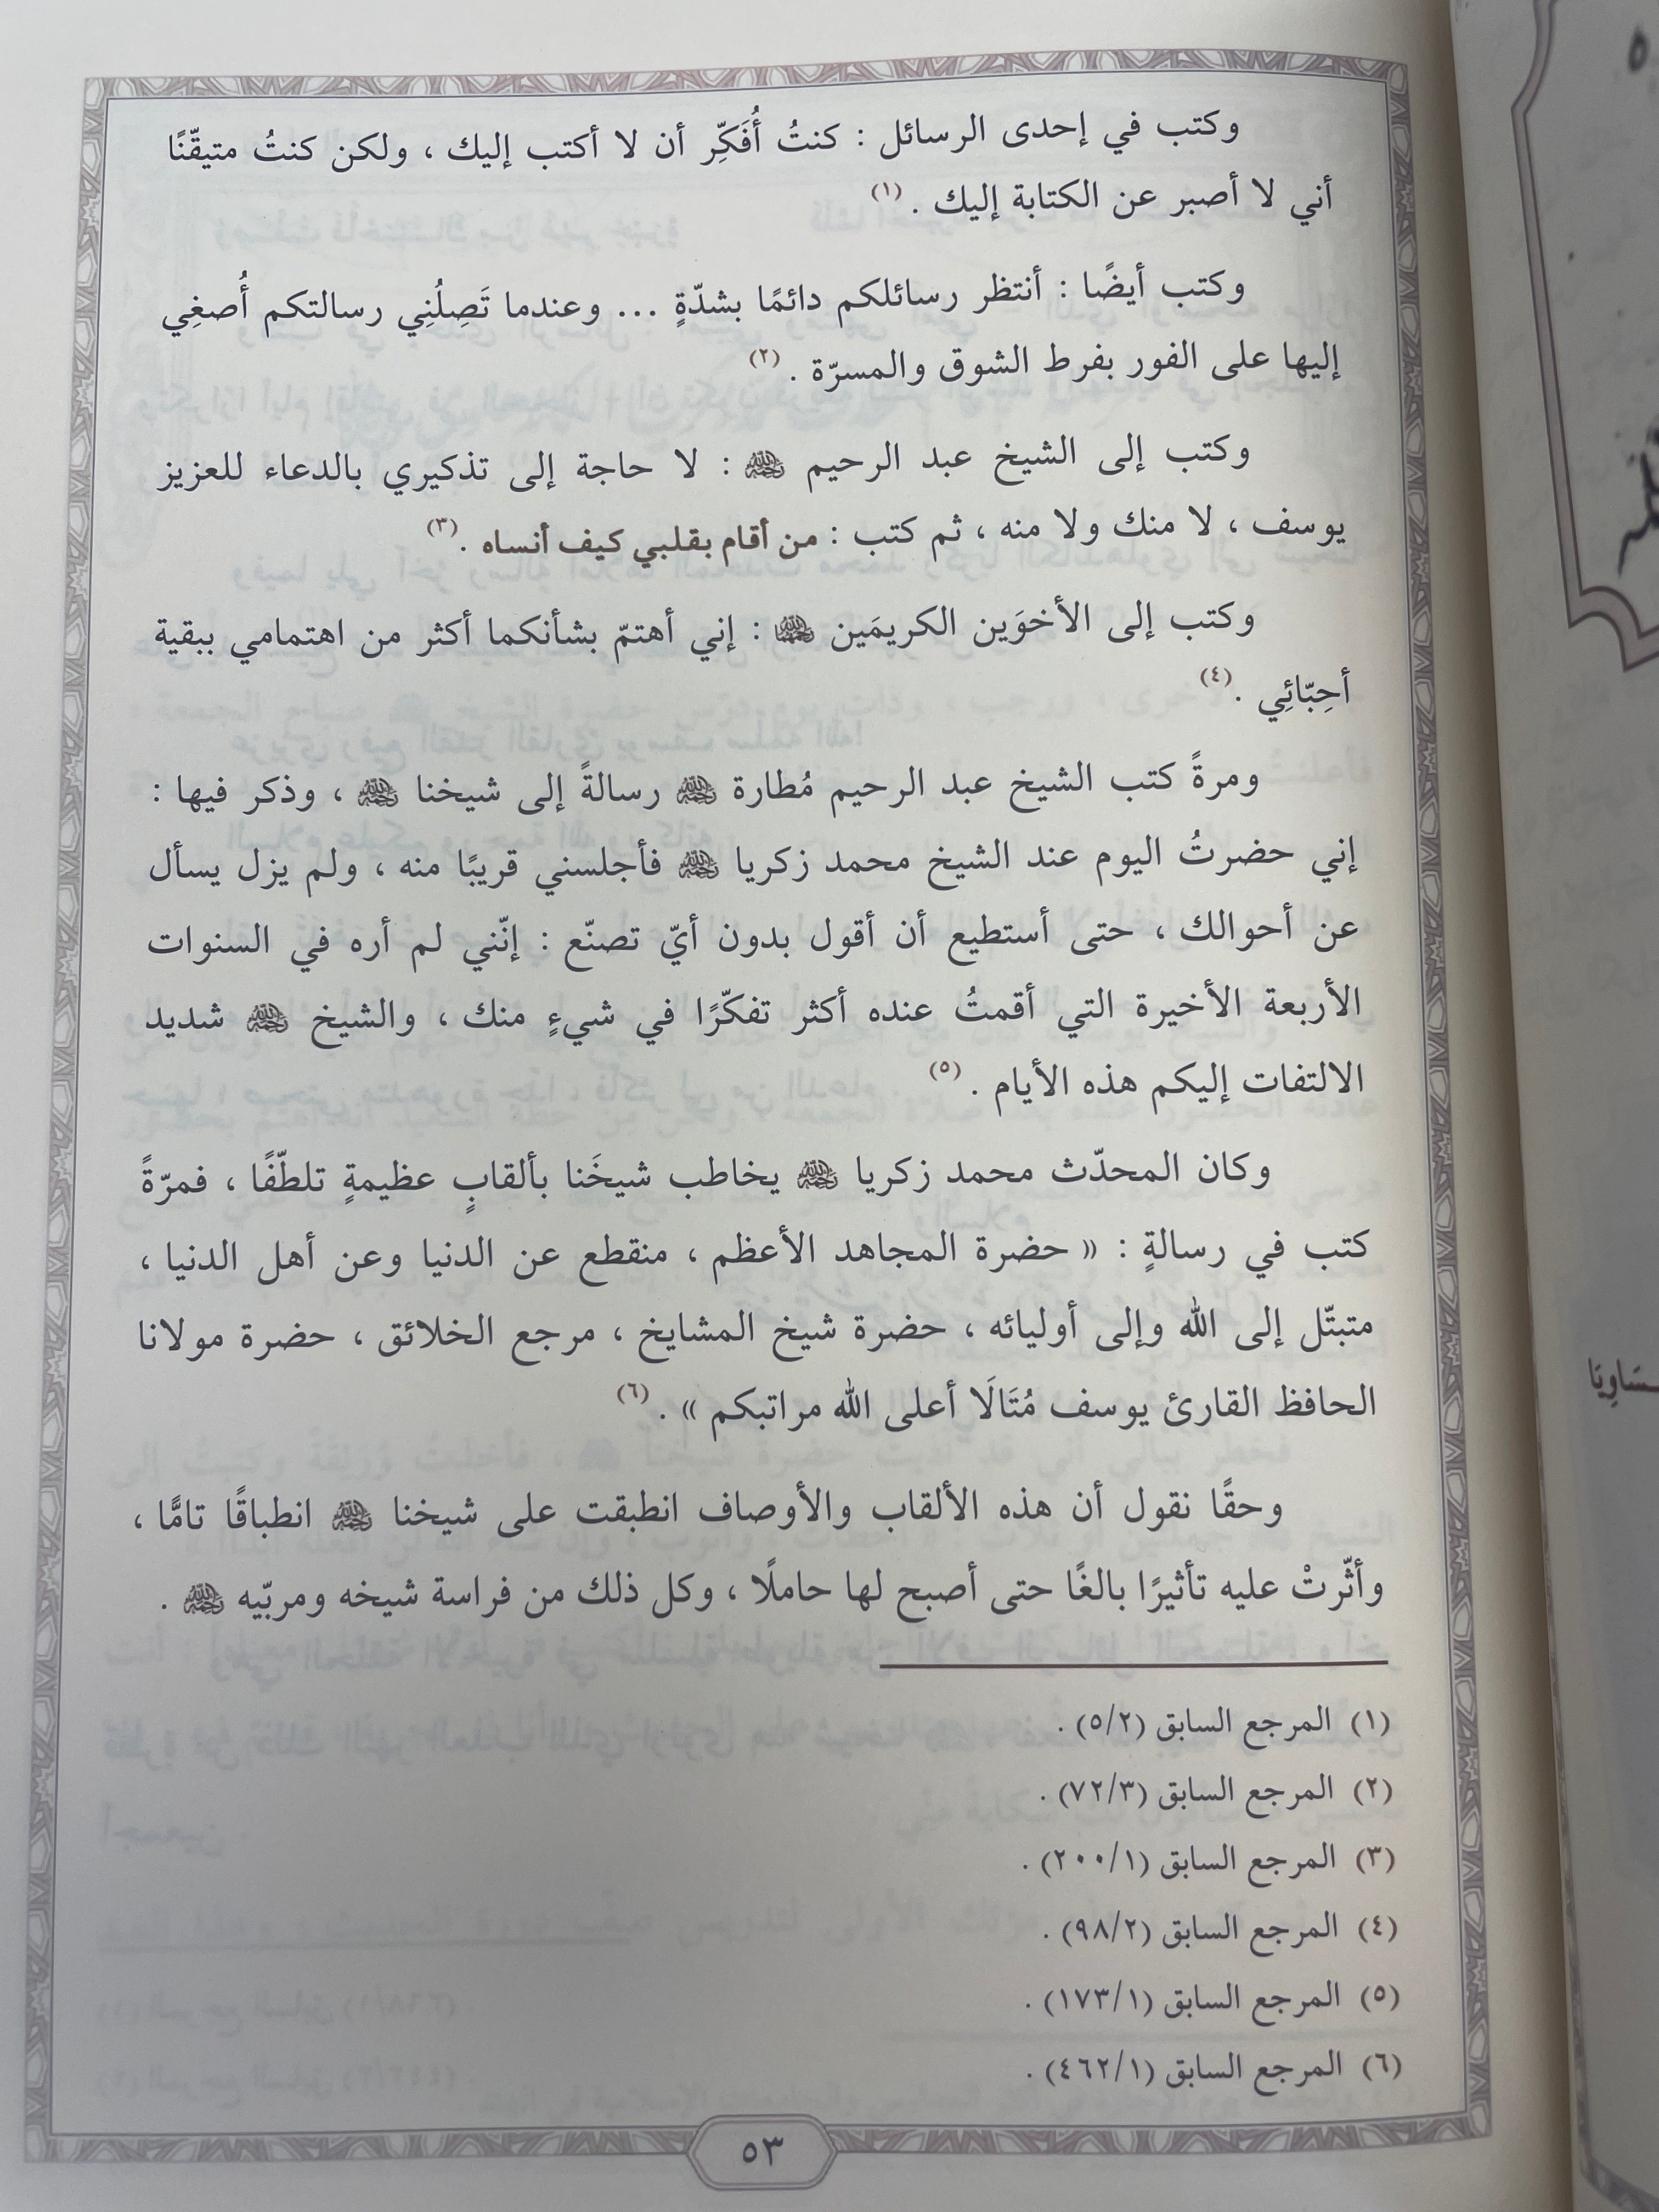 وكتب في إحدى الرسائل : كنتُ أُفَكِّر أن لا أكتب إليك ، ولكن كنتُ متيقّنًا
أني لا أصبر عن الكتابة إليك . (١)
وكتب أيضًا : أنتظر رسائلكم دائمًا بشدّةٍ ... وعندما تَصِلُنِي رسالتكم أُصغِي
إليها على الفور بفرط الشوق والمسرّة . (٢)
وكتب إلى الشيخ عبد الرحيم رحمه الله : لا حاجة إلى تذكيري بالدعاء للعزيز
يوسف ، لا منك ولا منه ، ثم كتب : من أقام بقلبي كيف أنساه .(٣)
وكتب إلى الأخوَين الكريمَين رحمهما الله : إني أهتمّ بشأنكما أكثر من اهتمامي ببقية
أحِبّائِي .(٤)
ومرةً كتب الشيخ عبد الرحيم مُطارة رحمه الله رسالةً إلى شيخنا رحمه الله ، وذكر فيها :
إني حضرتُ اليوم عند الشيخ محمد زكريا رحمه الله فأجلسني قريبًا منه ، ولم يزل يسأل
عن أحوالك ، حتى أستطيع أن أقول بدون أيّ تصنّع : إنّني لم أره في السنوات
الأربعة الأخيرة التي أقمتُ عنده أكثر تفكّرًا في شيءٍ منك ، والشيخ رحمه الله شديد
الالتفات إليكم هذه الأيام . (٥)
وكان المحدّث محمد زكريا رحمه الله يخاطب شيخَنا بألقابٍ عظيمةٍ تلطّفًا ، فمرّةً
كتب في رسالةٍ : « حضرة المجاهد الأعظم ، منقطع عن الدنيا وعن أهل الدنيا ،
متبتّل إلى الله وإلى أوليائه ، حضرة شيخ المشايخ ، مرجع الخلائق ، حضرة مولانا
الحافظ القارئ يوسف مُتَالَا أعلى الله مراتبكم » . (٦)
وحقًا نقول أن هذه الألقاب والأوصاف انطبقت على شيخنا رحمه الله انطباقًا تامًّا ،
وأثّرتْ عليه تأثيرًا بالغًا حتى أصبح لها حاملًا ، وكل ذلك من فراسة شيخه ومربّيه رحمه الله .
(١) المرجع السابق (٥/٢) .
(٢) المرجع السابق (٧٢/٣) .
(٣) المرجع السابق (٢٠٠/١) .
(٤) المرجع السابق (٩٨/٢) .
(٥) المرجع السابق (١٧٣/١) .
(٦) المرجع السابق (٤٦٢/١) .
٥٣